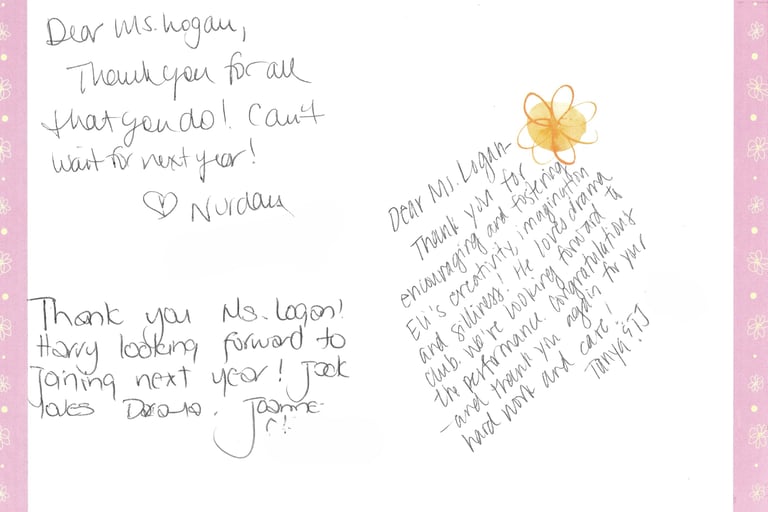 Dear Ms. Logan,
Thank you for all
that you do! Can't
wait for next year!
♡ Nurdan
Thank you Ms. Logan!
Harry looking forward to
joining next year! Jack
loves Drama. Joanne
Dear Ms. Logan-
Thank you for
encouraging and fostering
Eli's creativity, imagination
and silliness! He loves drama
club. We're looking forward to
the performance. Congratulations
-and thank you again for your
hard work and care!
Tanya & TJ